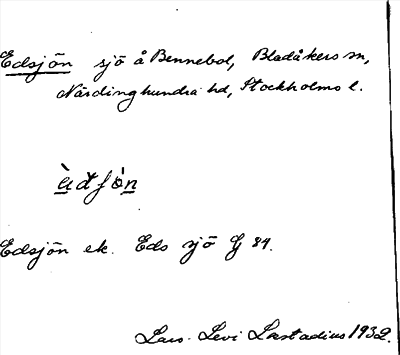 Edsjön sjö å Bennebol, Bladåkers sn,
Närdinghundra hd, Stockholms l.
Edsjön ek. Eds sjö G 84.
Lars Levi Læstadius 1932.